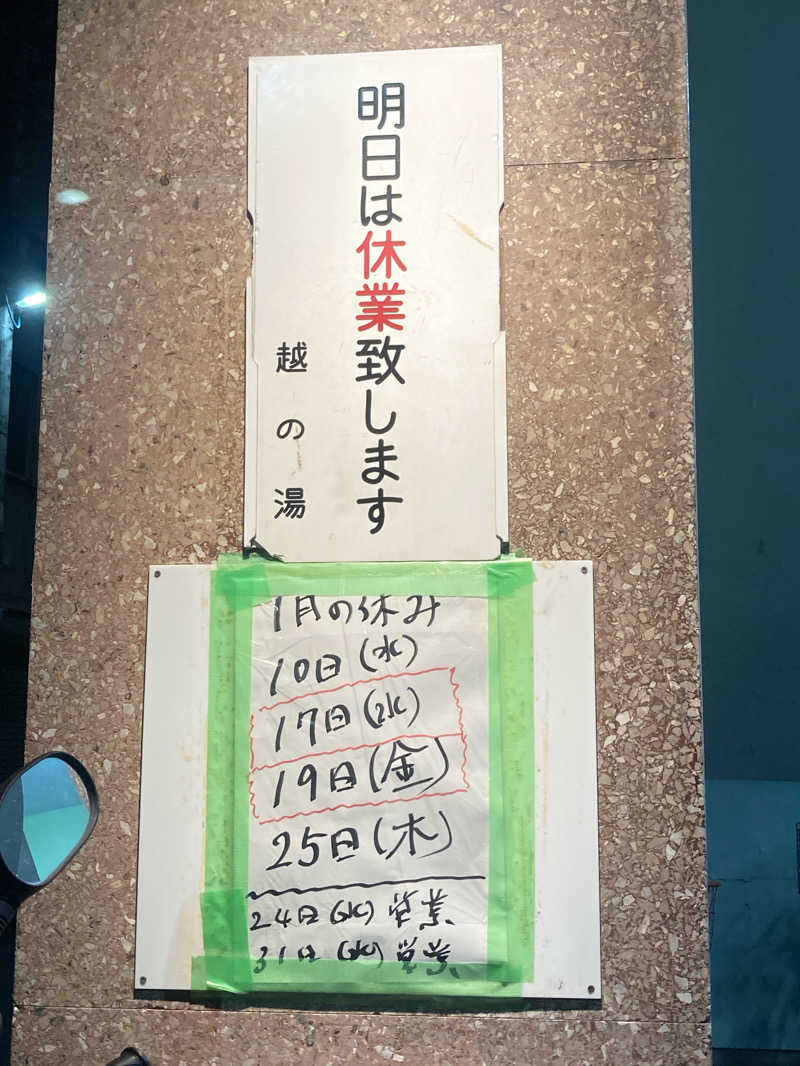 明日は休業致します
越の湯
1月の休み
10日(水)
17日(水)
19日(金)
25日(木)
24日(水)営業
31日(水)営業